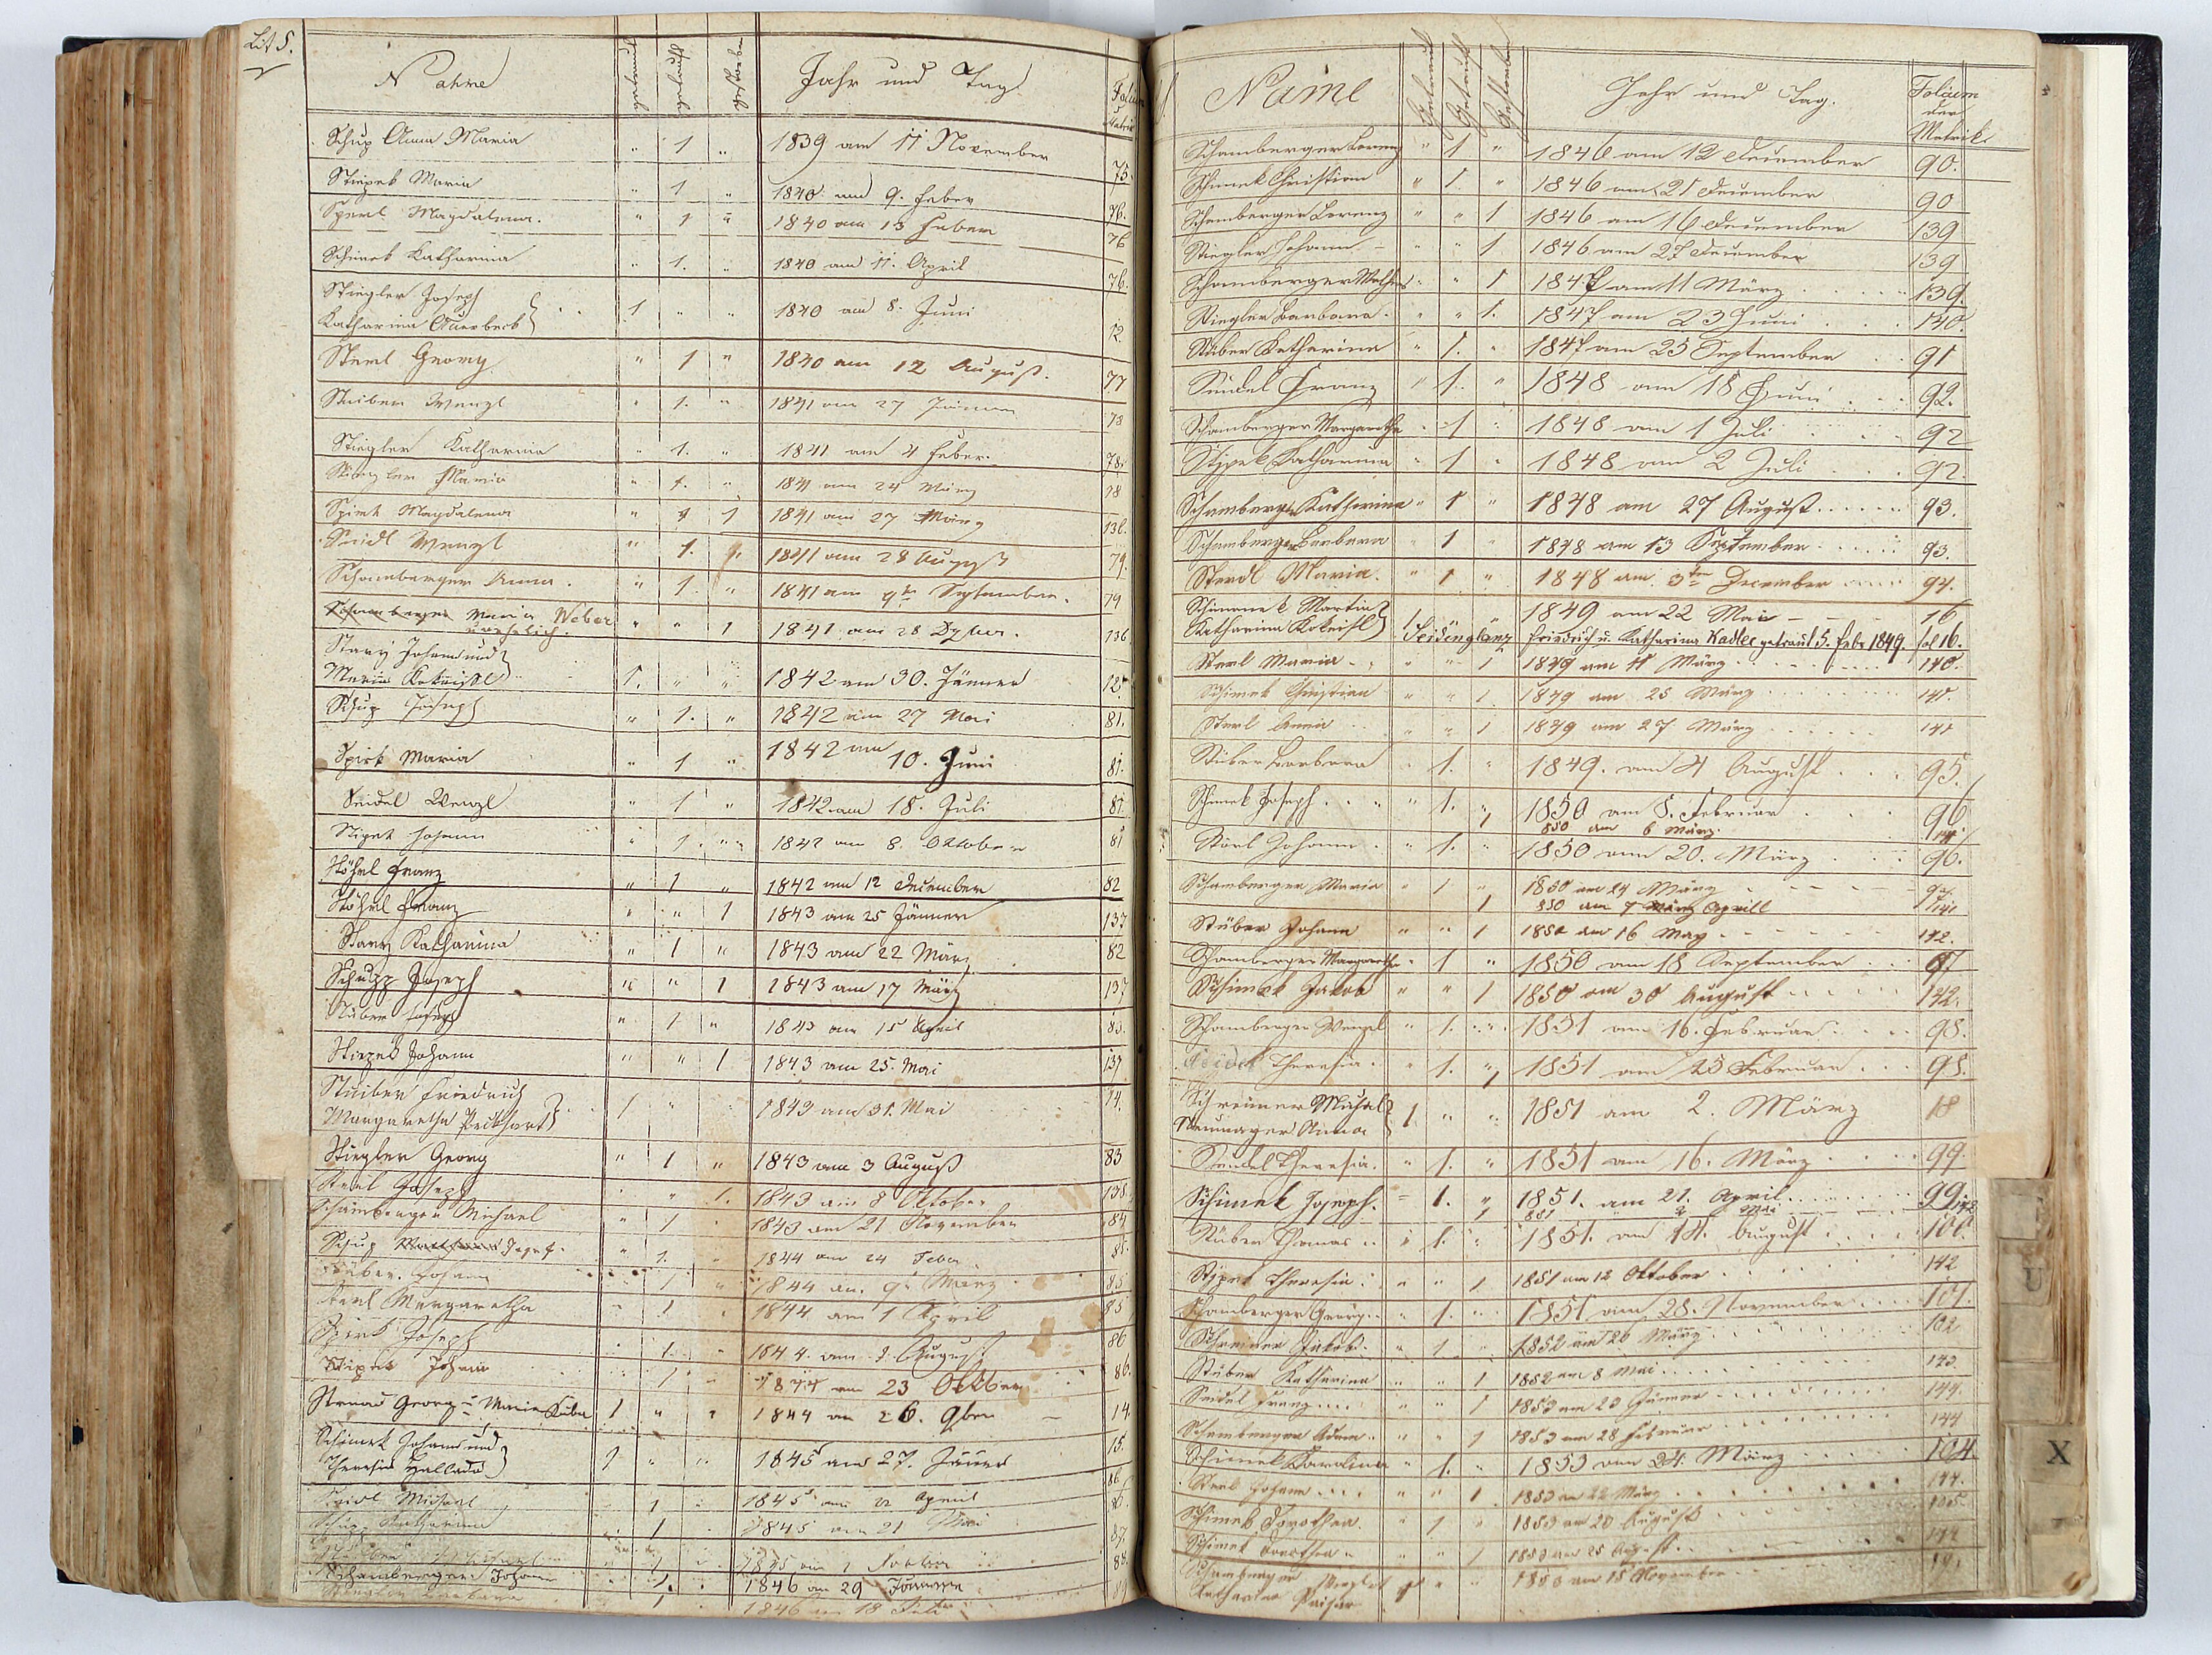 Lit S.
Nahme getraut getauft gestorben Jahr und Tag Folium
Schup Anna Maria " 1 " 1839 am 11 November 75.
Stipek Maria " 1 " 1840 am 9. Feber 76.
Sperl Magdalena. " 1 " 1840 am 13 Feber 76
Schimek Katharina " 1. " 1840 am 11. April 76.
Stiegler Joseph
Katharina Auerbeck 1 " " 1840 am 8. Juni 12
Sterl Georg " 1 " 1840 am 12 August. 77
Stuiber Wenzl " 1. " 1841 am 27 Jänner 78
Stiegler Katharina " 1. " 1841 am 4 Feber. 78.
Stiegler Maria " 1. " 1841 am 24 März 78
Spirk Magdalena " 1 1841 am 27 März 136.
Seidl Wenzl " 1. 1841 am 28 August 79.
Schamberger Anna. " 1. " 1841 am September. 79
Schamberger Maria Weber
unehelich. " " 1 1841 am 28 136
Stary Johann und
Maria Kokeisl 1. " " 1842 am 30. Jänner 12.
Schup Joseph " 1. " 1842 am 27 Mai 81.
Spirk Maria " 1 " 1842 am 10. Juni 81.
Seidel Wenzl " 1 " 1842 am 18. Juli 81.
Stipek Johann " 1. " 1842 am 8. Oktober 81
Stöhrl Franz " 1 " 1842 am 12 December 82
Stöhrl Franz " " 1 1843 am 25 Jänner 137
Stary Katharina " 1 " 1843 am 22 März 82
Schupp Joseph " " 1 1843 am 17 März 137
Stuber Joseph " 1 " 1843 am 15 April 83.
Stipek Johann " " 1 1843 am 25. Mai 137
Stuiber Friedrich
Margaretha 1 " " 1843 am 31. Mai 14.
Stiegler Georg " 1 " 1843 am 3 August 83
Sterl Joseph " " 1. 1843 am 8 Oktober 138.
Schamberger Michael " 1 1843 am 21 November 84
Schup Josef. " 1. 1844 am 24 Feber
Stüber Johann 1 " 1844 am 9. März 85
Sterl Margaretha " 1 1844 am 1 April 85
Spirk Joseph 1. 1844. am August 86
Stipek Johann 1 1844 am 23 Oktober 86.
Strnad Georg u Maria Kuba 1 " " 1844 am 26. 9ber 14.
Schimek Johann und
Theresia 1 " " 1845 am 27. Jäner 15.
Seidl Michael 1 1845 am 22 April 86.
Schup Katharina 1 1845 am 21 Mai
1 1845 am 87.
Schamberger Johann 1. 1846 am 29 Jänner 88.
Stiegler Barbara 1 1846 am 18
Name Getraut Getauft Gestorben Jahr und Tag. Folium der Matrik.
Schamberger Lorenz " 1 " 1846 am 12 December 90.
Schimek Christian " 1. " 1846 am 21 December 90
Schamberger Lorenz " " 1 1846 am 16 December 139
Stiegler Johann " " 1 1846 am 27 December 139
Schamberger " " 1 1847 am 11 März 139.
Stiegler Barbara. " " 1. 1847 am 23 Juni 140.
Stüber Katharina " 1. " 1847 am 25 September 91
Seidel Franz " 1. " 1848 am 18 Juni 92.
Schamberger Margaretha " 1 " 1848 am 1 Juli 92
Stipek Katharina " 1 " 1848 am 2 Juli 92.
Schamberger Katharina " 1 " 1848 am 27 August 93.
Schamberger Barbara " 1 " 1848 am 13 September 93.
Sterdl Maria. " 1 " 1848 am 3ten December 94.
Schimmek Martin
Katharina Kokeisl 1 " " 1849 am 22 Mai 16
Seidinglanz Friedrich u. Katharina Kadlec getraut 5. Febr 1849. fol 16.
Sterl Maria " " 1 1849 am 11 März 140.
Schimek Christian " " 1 1849 am 25 März 141.
Sterl Anna " " 1 1849 am 27 März 141
Stüber Barbara " 1. " 1849. am 4 August 95.
Schimek Joseph " 1. " 1850 am 8. Februar 96
1 850 am 6 März. 141
Störl Johann " 1. " 1850 am 20. März 96.
Schamberger Maria " 1 " 1850 am 24 März
1 850 am 7 Aprill 141
Stüber Johann " " 1 1850 am 16 May 142.
Schamberger Margaretha " 1 " 1850 am 18 September 97
Schimek Jakob " " 1 1850 am 30 August 142.
Schamberger Wenzel " 1. " 1851 am 16. Februar 98.
Theresia. " 1. " 1851 am 25 Februar 98.
Schreiner Michal
Neumayer Anna 1 " " 1851 am 2. März 18
Seidel Theresia. " 1. " 1851 am 16. März 99.
Schimek Joseph. " 1. " 1851. am 21. April 99
1 851 2 Mai 142
Stüber Thomas " 1. " 1851. am 14. August 100.
Stipek Theresia " " 1 1851 am 12 Oktober 142
Schamberger Georg " 1. " 1851 am 28. November 101.
Schreiner Jakob. " 1 " 1852 am 26 März 102
Stüber Katharina " " 1 1852 am 8 Mai 143.
Seidel Franz " " 1 1853 am 20 Jänner 144.
Schamberger Adam " " 1 1853 am 28 Februar 144
Schimek Karolina " 1. " 1853 am 24. März 104.
Sterl Johann " " 1 1853 am 22 März 144.
Schimek Dorothea. " 1 " 1853 am 20 August 105.
Schimek Dorothea " " 1 1853 am 25 August 144
Schamberger
Katharina 1850 am 15 November
U
X